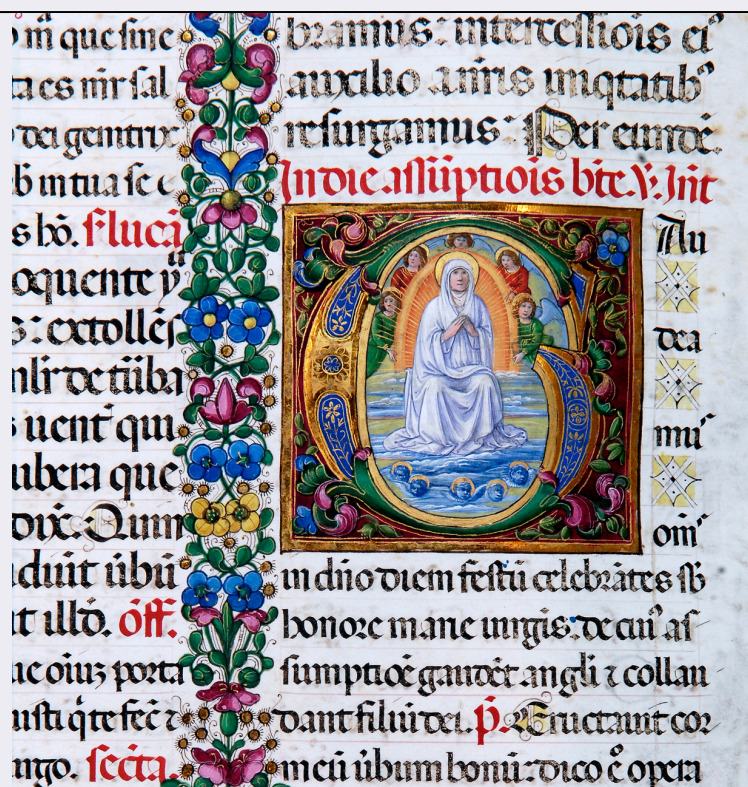 m̄ que sine
ta es nir̄ sal
dei genitrix
b̄ in tua se c
s ho. s. lucā
loquente
s: extollēs
de tūba
uent̄ qui
ubera que
dix̄. Quim
duīt ūbū
t illd̄. oƒƒ.
uc oiuꝫ porta
iusti q̄ te fec̄ ⁊
ingo. sectā.
bramus: intercessiōis ei⁹
auxilio a nr̄is iniqtatib⁹
resurgamus: Per eundē.
In die assūptiōis bt̄e. V. Int̄
Au
dea
mu⁹
om̄
in dn̄o diem festū celebrātes sb̄
honore marie uirgīs: de cui⁹ as
sumptiōe gaudēt angli ⁊ collau
dant filiū dei. p̄. Eructauit cor
meū ūbum bonū: dico ē opera